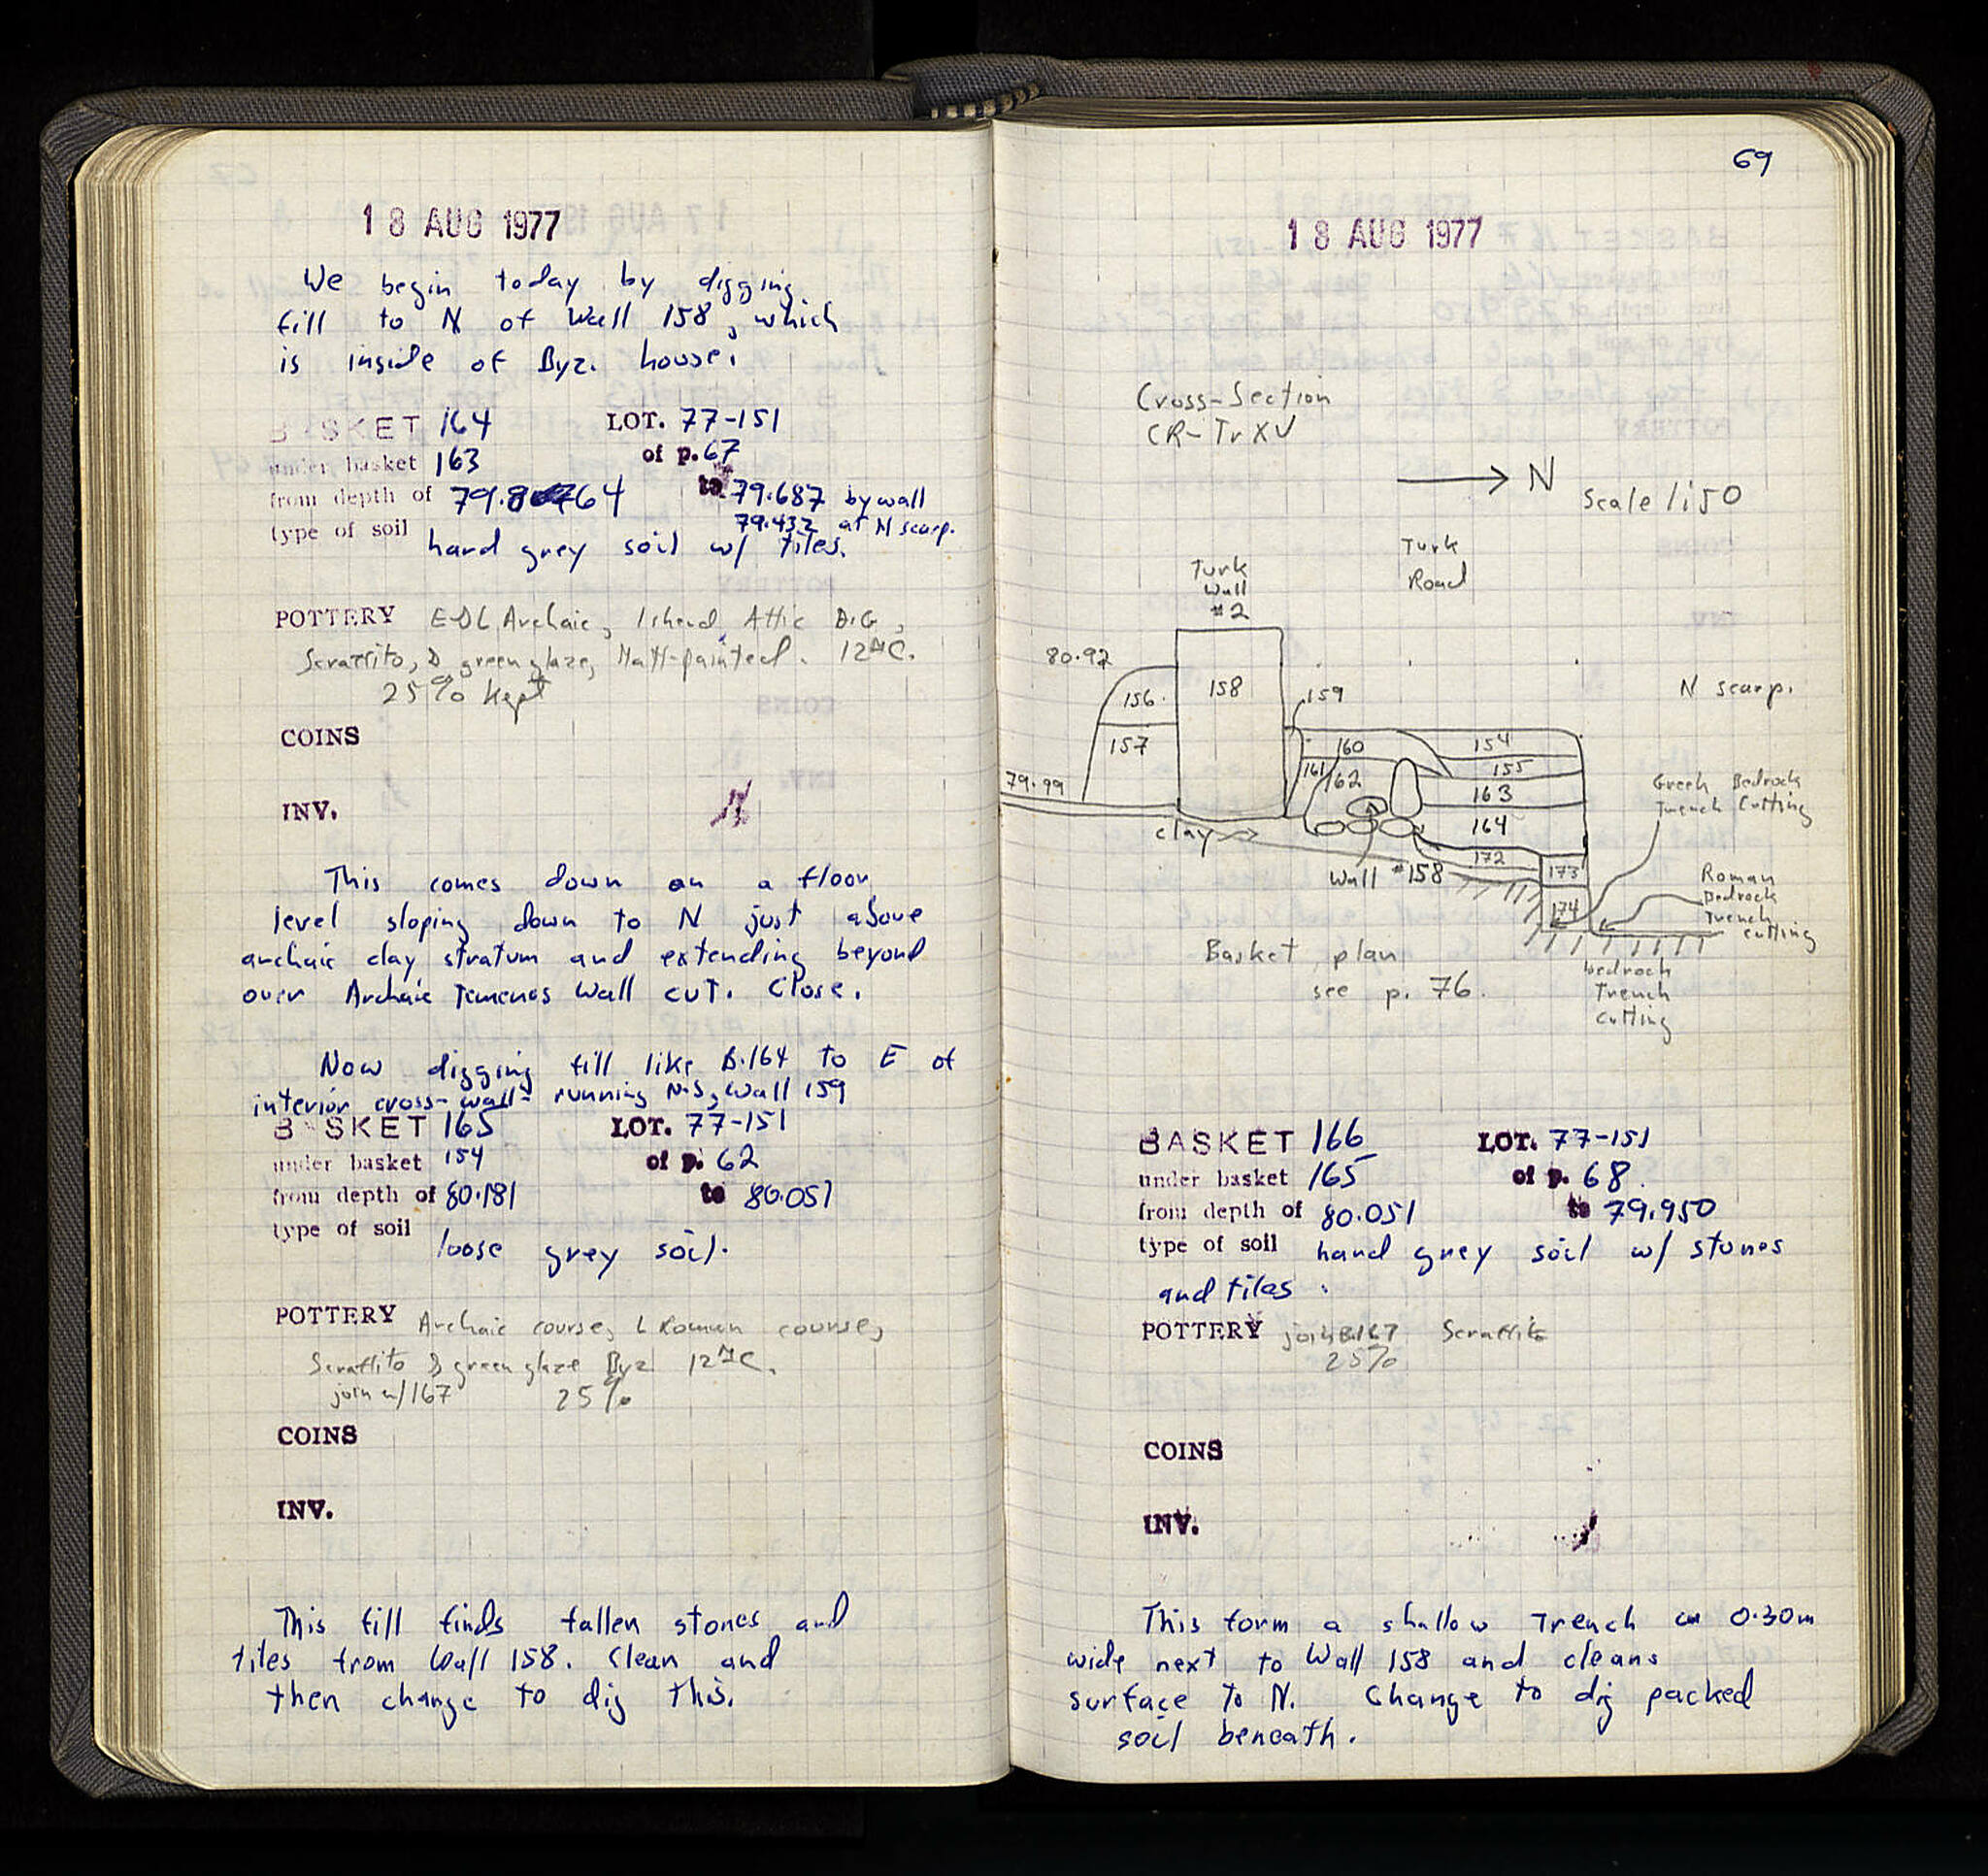 18 AUG 1977
We begin today by digging
fill to N of Wall 158, which
is inside of Byz. house.
BASKET 164 LOT. 77-151
under basket 163 of p. 67
from depth of 79.864 to 79.687 by wall
79.432 at N scarp.
type of soil hard grey soil w/ tiles.
POTTERY E-DL Archaic, Island, Attic B.G,
Scraffito, & green glaze, Matt-painted. 12thC.
25% kept
COINS
INV.
This comes down on a floor
level sloping down to N just above
archaic clay stratum and extending beyond
over Archaic Temenos Wall cut. Close.
Now digging fill like B.164 to E of
interior cross-wall- running N-S, Wall 159
BASKET 165 LOT. 77-151
under basket 154 of p. 62
from depth of 80.181 to 80.051
type of soil loose grey soil.
POTTERY Archaic course, L Roman course,
Scraffito & green glaze Byz 12thC.
join w/167 25%
COINS
INV.
This fill finds fallen stones and
tiles from Wall 158. Clean and
then change to dig this.
69
18 AUG 1977
Cross-Section
CR-Tr XV
N Scale 1:50
Turk
Road
Turk
Wall
#2
80.92
156 158 159
N scarp.
157 160 154
161 162 155
79.99 163
Greek Bedrock
Trench Cutting
clay 164
172 173
Wall #158
174
Roman
Bedrock
Trench
cutting
Basket plan
see p. 76.
bedrock
Trench
cutting
BASKET 166 LOT. 77-151
under basket 165 of p. 68.
from depth of 80.051 to 79.950
type of soil hard grey soil w/ stones
and tiles.
POTTERY join B.167 Scraffito
25%
COINS
INV.
This form a shallow Trench ca 0.30m
wide next to Wall 158 and cleans
surface to N. Change to dig packed
soil beneath.